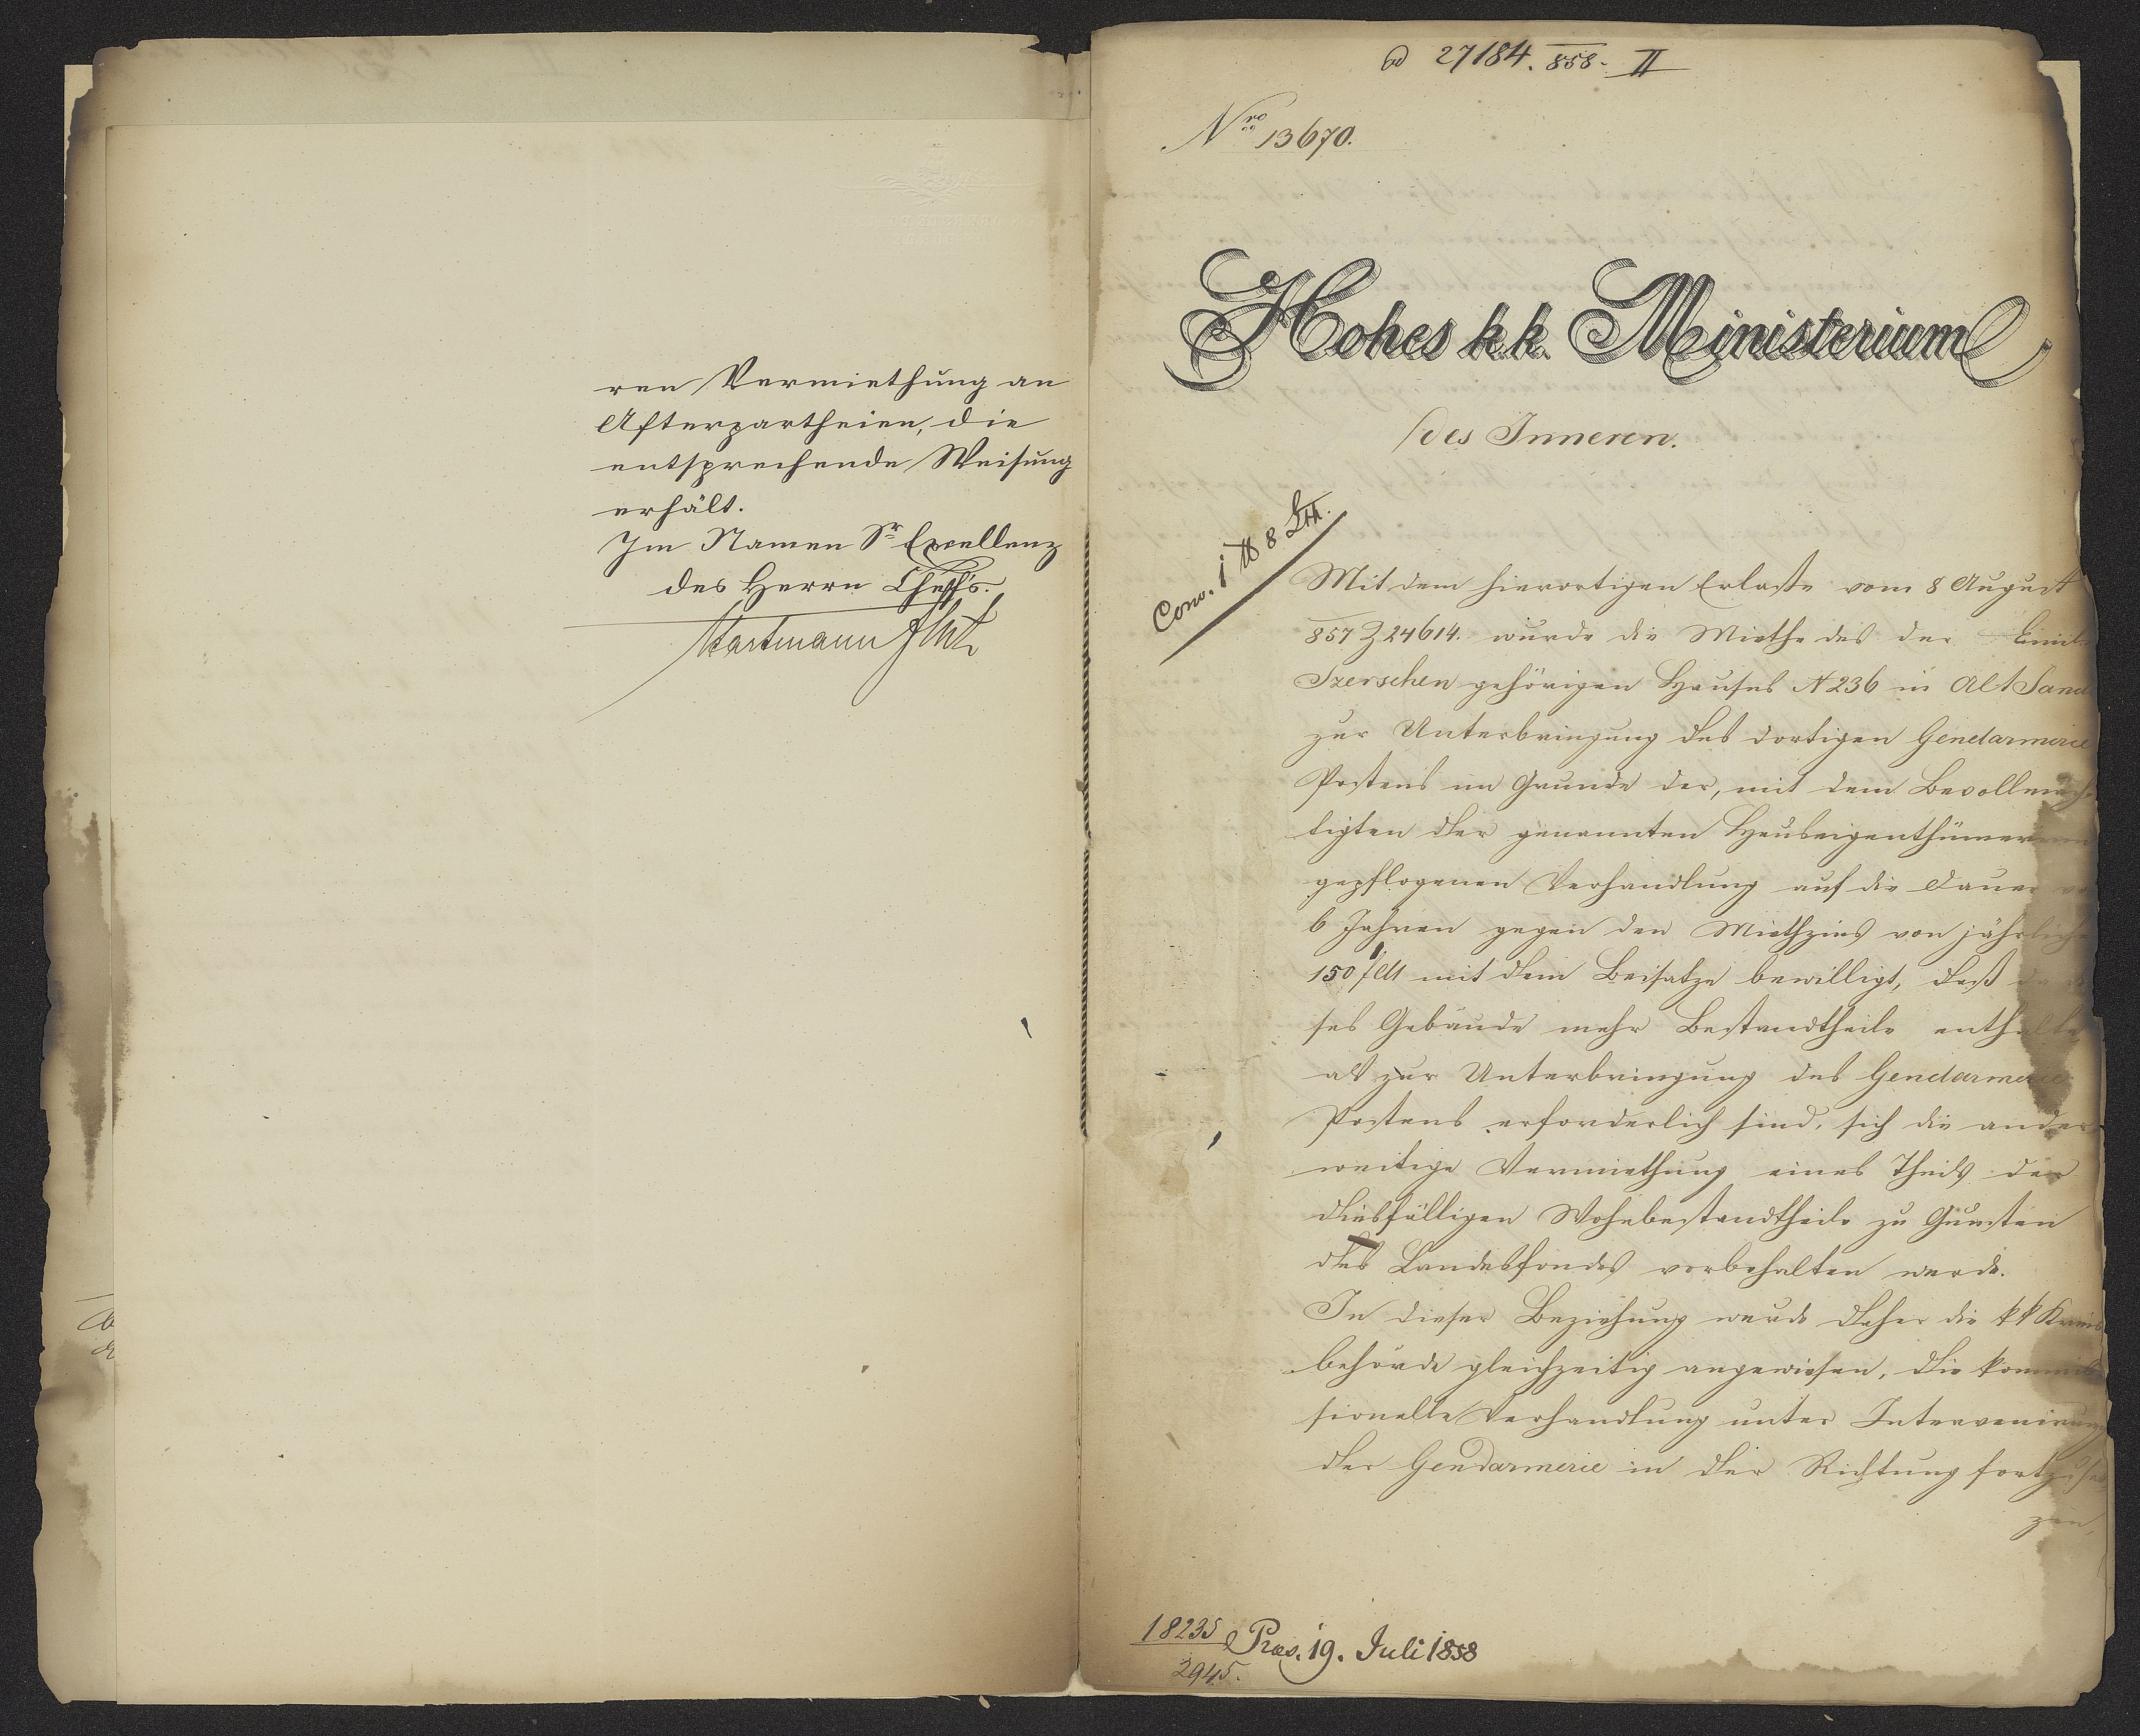 ren Vermiethung an
Afterpartheien, die
entsprechende Weisung
erhält.
Im Namen Sr Excellenz
des Herrn Cheff's.
Hartmann
ad 27184. 858. II
Nro 13670.
Hohes k.k. Ministerium
des Inneren.
Conv. 1 8 Lth.
Mit dem hierortigen Erlaße vom 8 August
857 Z 24614. wurde die Miethe des der
gehörigen Hauses N 236 in Alt Sand
zur Unterbringung des dortigen Gendarmerie
Postens im Grunde der, mit dem Bevollmäch-
tigten der genannten Hauseigenthümerinn
gepflogenen Verhandlung auf die Dauer von
6 Jahren gegen den Miethzins von jährlichen
150 f CM mit dem Beisatze bewilligt, daß
ses Gebäude mehr Bestandtheile enthalte
als zur Unterbringung des Gendarmerie
Postens erforderlich sind, sich die ander-
weitige Vermiethung eines Theils der
diesfälligen Wohnbestandtheile zu Gunsten
des Landesfondes vorbehalten werde.
In dieser Beziehung wurde daher die kk Kreis
behörde gleichzeitig angewiesen, die kommis-
sionelle Verhandlung unter Intervenirung
der Gendarmerie in der Richtung fortzuset-
zen,
18235
2945.
Praes. 19. Juli 1858